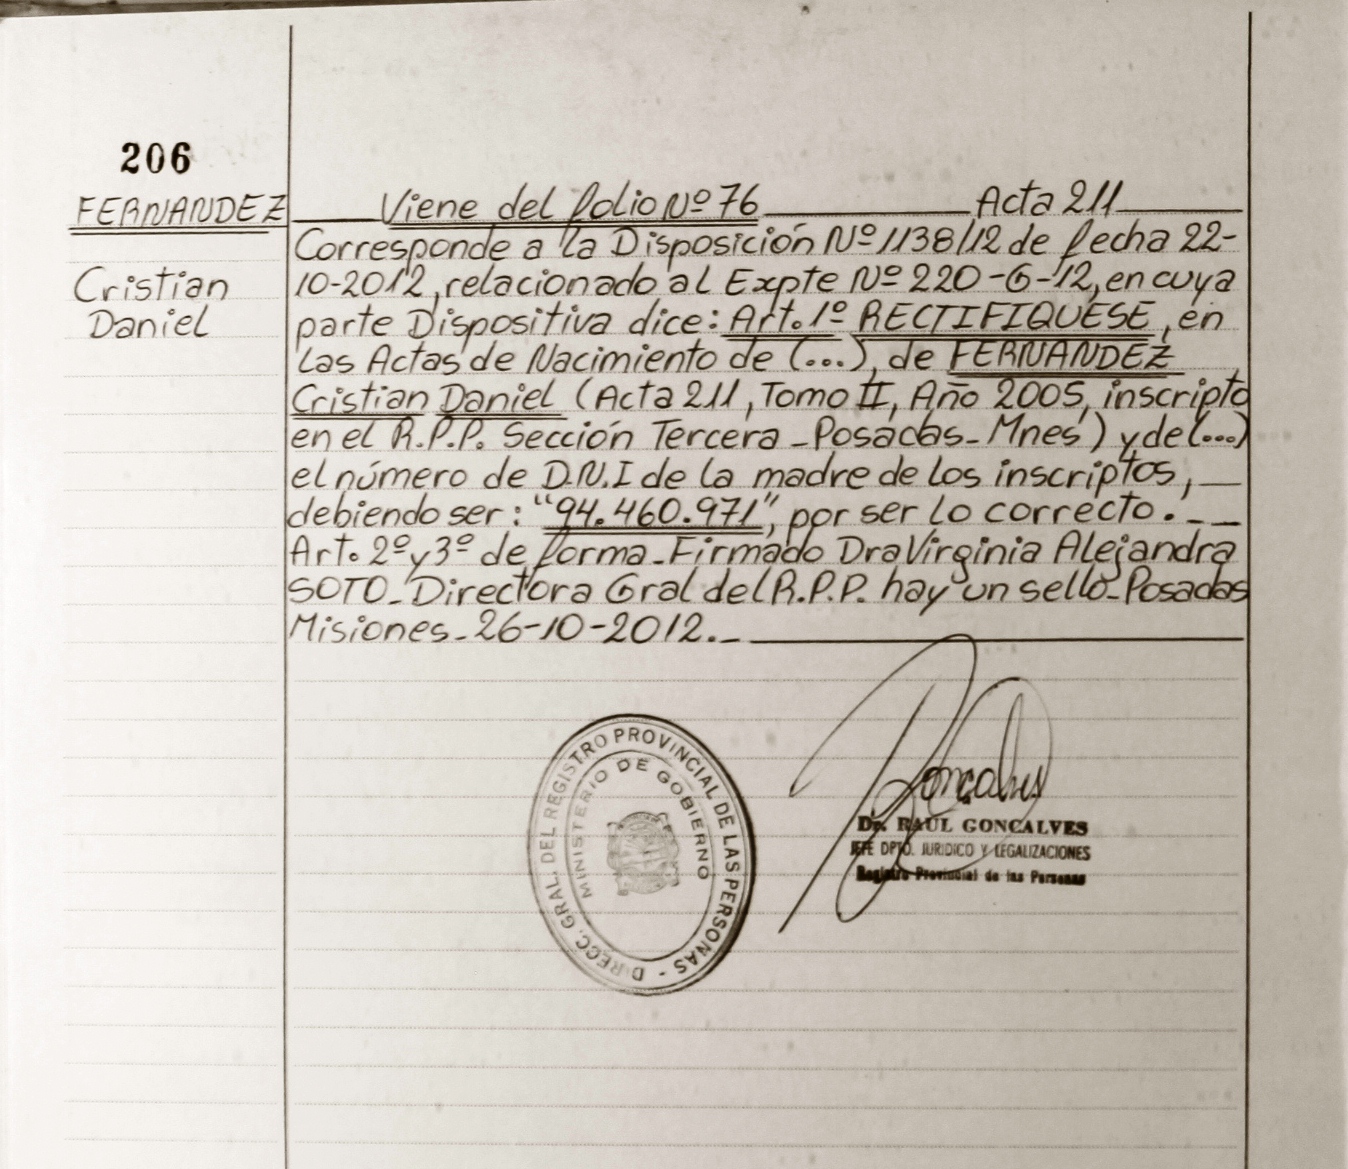 206
FERNANDEZ
Cristian
Daniel
Viene del folio Nº 76 Acta 211
Corresponde a la Disposición Nº 1138/12 de fecha 22-
10-2012, relacionado al Expte Nº 220-G-12, en cuya
parte Dispositiva dice: Art. 1º RECTIFIQUESE, en
las Actas de Nacimiento de (...), de FERNANDEZ
Cristian Daniel (Acta 211, Tomo II, Año 2005, inscripto
en el R.P.P. Sección Tercera - Posadas - Mnes) y de (...)
el número de D.N.I de la madre de los inscriptos,
debiendo ser: "94.460.971", por ser lo correcto.
Art. 2º y 3º de forma - Firmado Dra Virginia Alejandra
SOTO - Directora Gral del R.P.P. hay un sello - Posadas
Misiones - 26-10-2012.
DIRECC. GRAL. DEL REGISTRO PROVINCIAL DE LAS PERSONAS -
MINISTERIO DE GOBIERNO
Goncalves
Dr. RAUL GONCALVES
JEFE DPTO. JURIDICO Y LEGALIZACIONES
Registro Provincial de las Personas